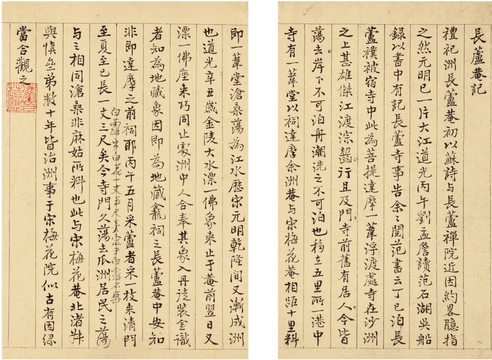 長蘆庵記
禮祀洲長蘆庵初以蘇詩与長蘆禪院近因約畧臆指
之然元明已一片大江道光丙午劉孟詹讀范石湖吳船
錄以書中有記長蘆寺事告余之閱范書云丁巳泊長
蘆襆被宿寺中此為菩提達摩一葦浮渡處寺在沙洲
之上甚雄傑江渡淙齧行且及門寺前舊有居人今皆
蕩去岸下不可泊舟潮洗之不可泊也移去五里所一港中
寺有一葦堂以祠達摩余洲庵与宋梅花庵相距十里料
即一葦堂滄桑蕩為江水歷宋元明乾隆間又漸成洲
也道光辛丑歲金陵大水漂一佛象来止于庵前翌日又
漂一佛座来巧同止處洲中人合奉其象入丹徒裝金識
者知為地藏象因即為地藏龕祠之長蘆庵中安知
非即達摩之前祠耶丙午五月采蘆者采一枝来清門
至夏至已長一丈三尺矣今寺門久蕩去瓜洲居民三蕩
与三相同滄桑非麻姑所料也此与宋梅花庵北渚牛
与慎無弟數十年皆治洲事于宋梅花院似古有因緣
當合觀之